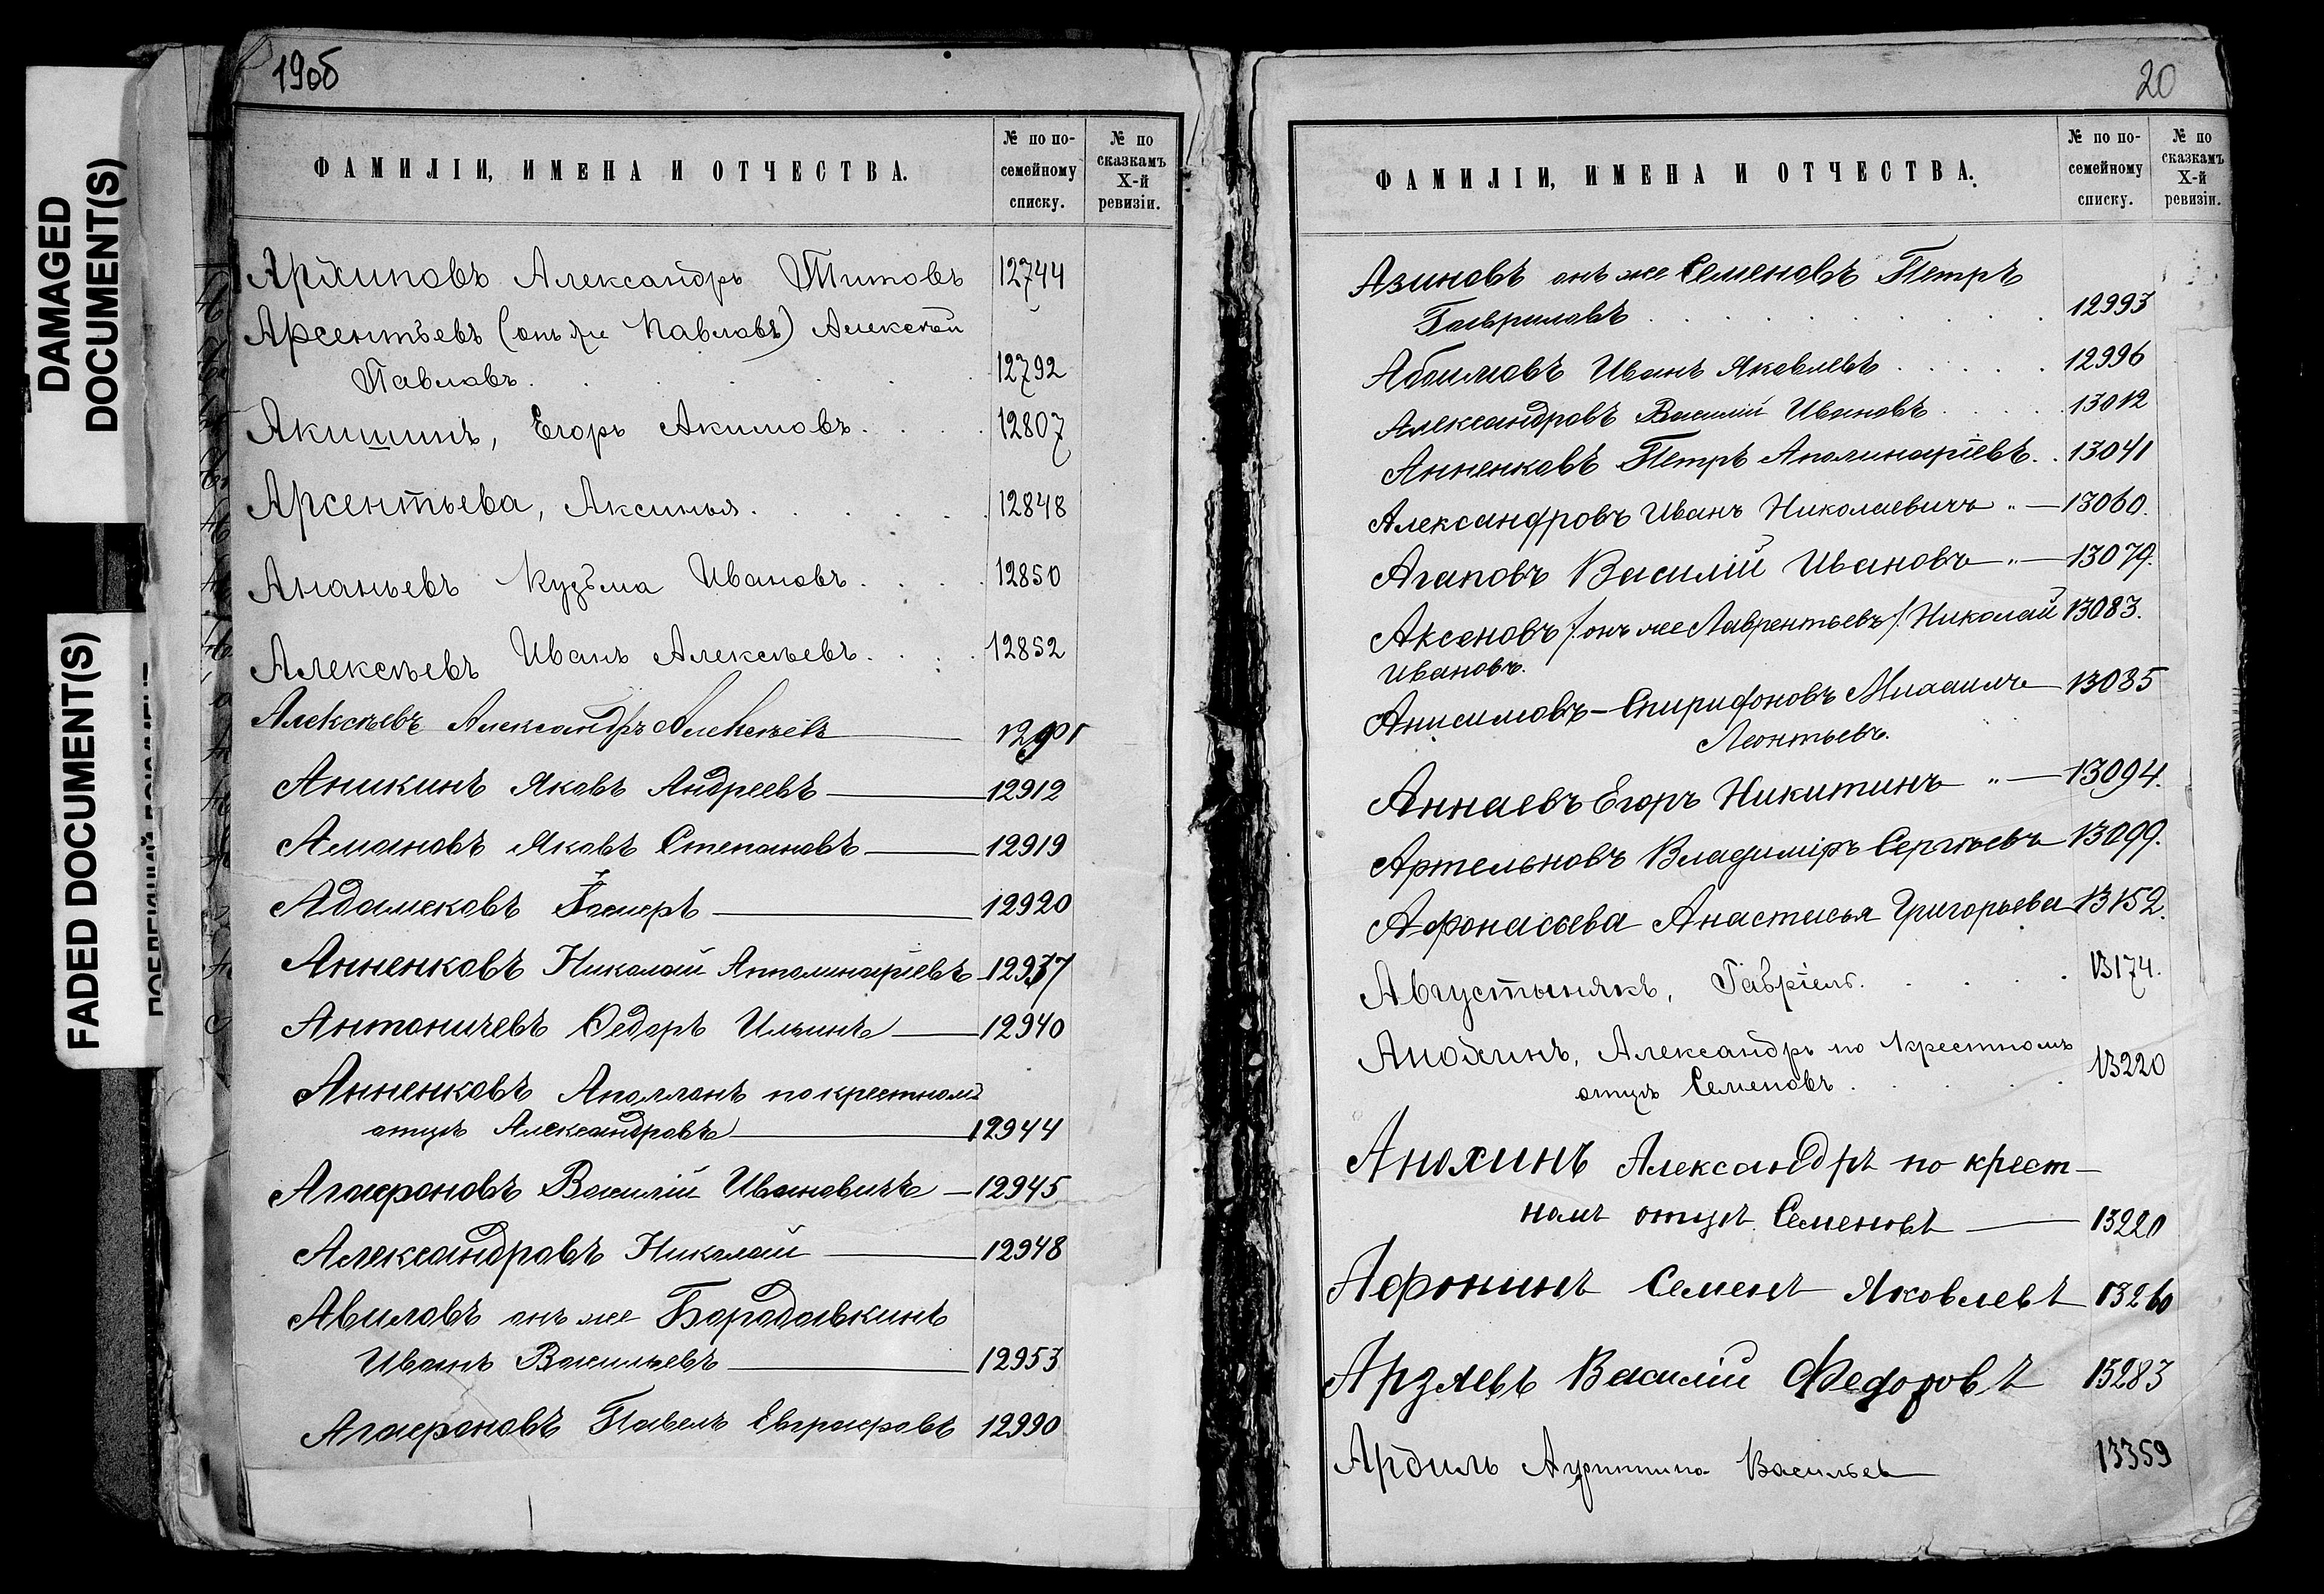 19об
ФАМИЛІИ, ИМЕНА И ОТЧЕСТВА.
№ по по-
семейному
списку.
№ по
сказкамъ
X-й
ревизіи.
Архиповъ Александръ Титовъ 12744
Арсентьевъ (онъ же Павловъ) Алексѣй
Павловъ. 12792
Акишинъ, Егоръ Акимовъ. 12807
Арсентьева, Аксинья. 12848
Ананьевъ Кузьма Ивановъ. 12850
Алексѣевъ Иванъ Алексѣевъ. 12852
Алексѣевъ Александръ Алексѣевъ
Аникинъ Яковъ Андреевъ 12912
Амановъ Яковъ Степановъ 12919
Адамековъ 12920
Анненковъ Николай Апполинаріевъ 12937
Антоничевъ Ѳедоръ Ильинъ 12940
Анненковъ Аполлонъ по крестному
отцу Александровъ 12944
Агафоновъ Василій Ивановичъ 12945
Александровъ Николай 12948
Авиловъ онъ же Бородавкинъ
Иванъ Васильевъ 12953
Агафоновъ Павелъ Евграфовъ 12990
20
ФАМИЛІИ, ИМЕНА И ОТЧЕСТВА.
№ по по-
семейному
списку.
№ по
сказкамъ
X-й
ревизіи.
Азиновъ онъ же Семеновъ Петръ
Гавриловъ 12993
Абаимовъ Иванъ Яковлевъ 12996
Александровъ Василій Ивановъ 13012
Анненковъ Петръ Аполинаріевъ. 13041
Александровъ Иванъ Николаевичъ „ — 13060.
Агаповъ Василій Ивановъ „ — 13079.
Аксеновъ /онъ же Лаврентьевъ/. Николай 13083.
Ивановъ.
Анисимовъ-Спиридоновъ Михаилъ 13085
Леонтьевъ.
Аннаевъ Егоръ Никитинъ „ — 13094.
Артельновъ Владиміръ Сергѣевъ 13099.
Афонасьева Анастасья Григорьева 13152.
Августынякъ, Габріель. 13174.
Анохинъ, Александръ по крестномъ
отцѣ Семеновъ. 13220
Анохинъ Александръ по крест-
номъ отцѣ Семеновъ 13220
Афонинъ Семенъ Яковлевъ 13260
Арзяевъ Василій Федоровъ 13283
Васильев 13359
DAMAGED
DOCUMENT(S)
FADED DOCUMENT(S)